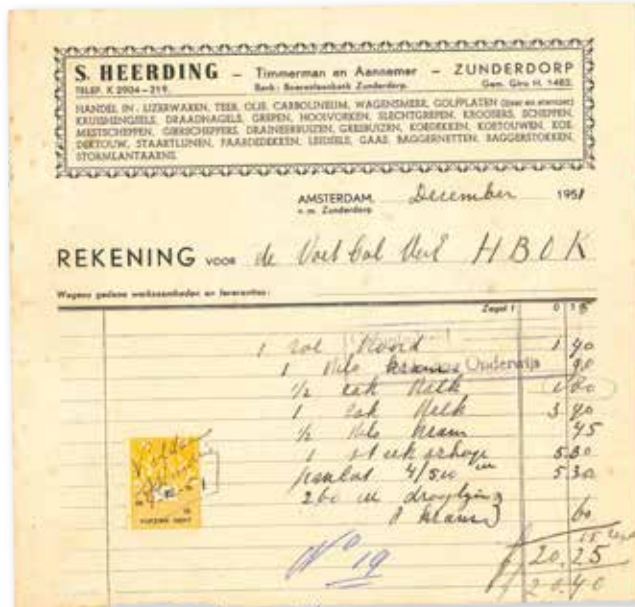 S. HEERDING – Timmerman en Aannemer – ZUNDERDORP
TELEF. K 2904–219. Bank: Boerenleenbank Zunderdorp. Gem. Giro H. 1482.
HANDEL IN: IJZERWAREN, TEER, OLIE, CARBOLINEUM, WAGENSMEER, GOLFPLATEN
KRUISHENGSELS, DRAADNAGELS, GREPEN, HOOIVORKEN, SLECHTGREPEN, KROOSERS, SCHEPPEN,
MESTSCHEPPEN, GIERSCHEPPERS, DRAINEERBUIZEN, GRESBUIZEN, KOEDEKKEN, KORTOUWEN, KOE-
DEKTOUW, STAARTLIJNEN, PAARDEDEKKEN, LEIDSELS, GAAS, BAGGERNETTEN, BAGGERSTOKKEN,
STORMLANTAARNS.
AMSTERDAM, December 1951
v. m. Zunderdorp
REKENING VOOR de Voet bal HBOK
Wegens gedane werkzaamheden en leveranties:
Zegel f 0 15
1 1 40
1 Kilo kram 90
1/2 zak 1 80
1 zak 3 40
1/2 Kilo kram 45
1 5 80
4/50 m 5 30
260 m
8 kram 60
15 zegel
20,25
20 40
No 19
Onderwijs
VIJFTIEN CENT